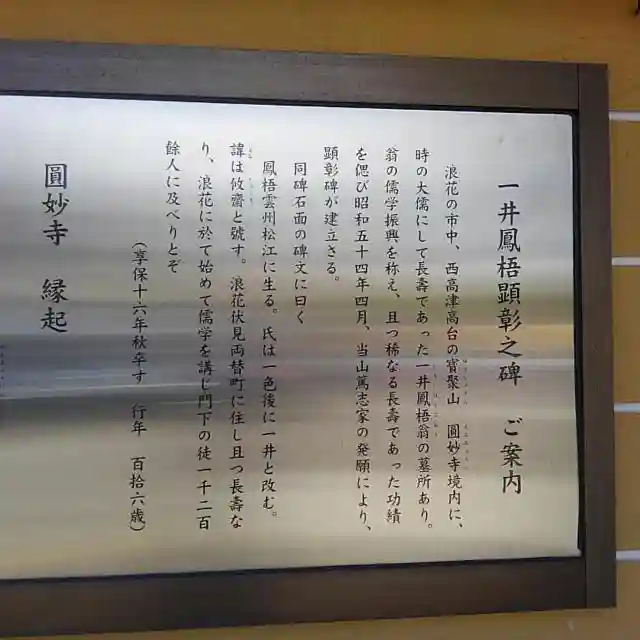 一井鳳梧顕彰之碑　ご案内
浪花の市中、西高津高台の寶聚山　圓妙寺境内に、
時の大儒にして長壽であった一井鳳梧翁の墓所あり。
翁の儒学振興を称え、且つ稀なる長壽であった功績
を偲び昭和五十四年四月、当山篤志家の発願により、
顕彰碑が建立さる。
同碑石面の碑文に曰く
鳳梧雲州松江に生る。氏は一色後に一井と改む。
諱は攸齋と號す。浪花伏見両替町に住し且つ長壽な
り、浪花に於て始めて儒学を講じ門下の徒一千二百
餘人に及べりとぞ
（享保十六年秋卒す　行年　百拾六歳）
圓妙寺　縁起